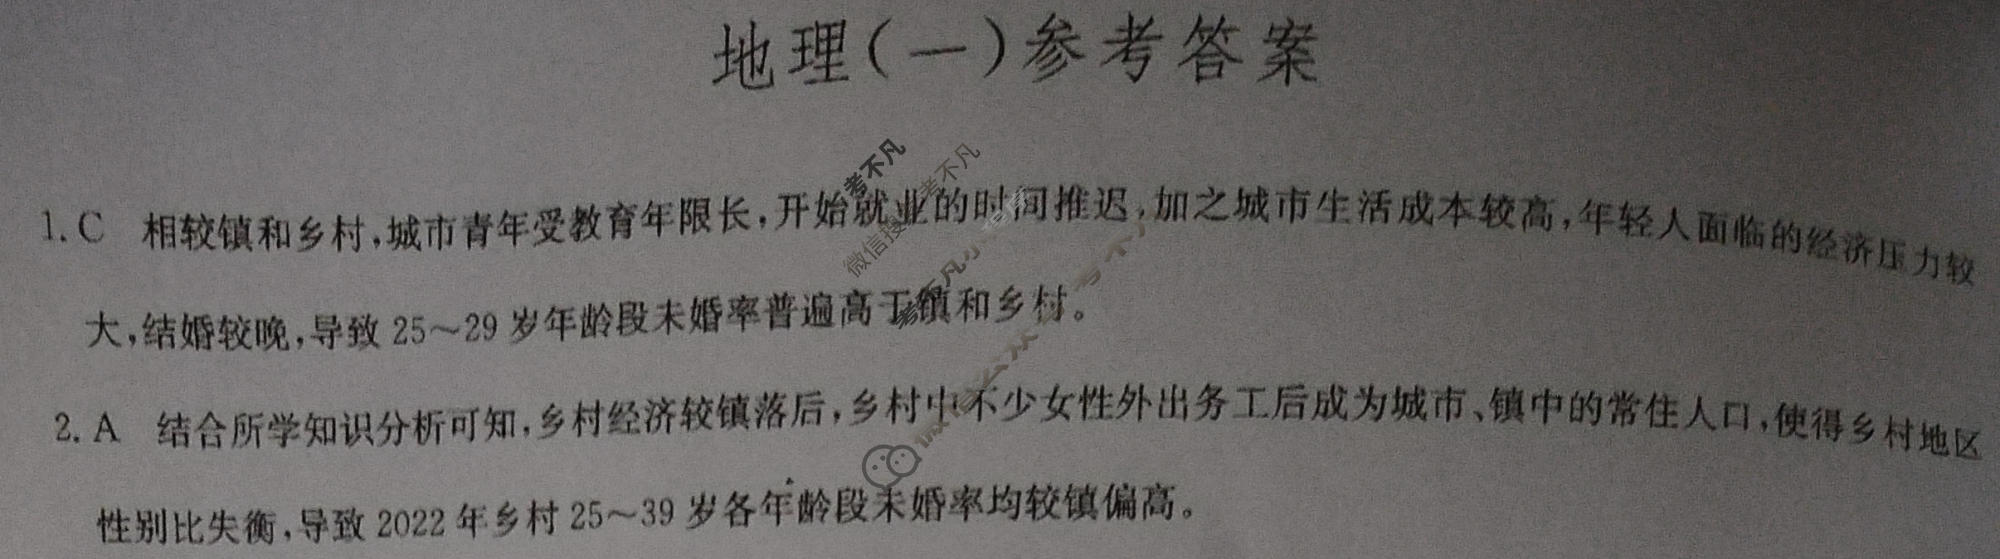 地理(一)参考答案
1. C 相较镇和乡村,城市青年受教育年限长,开始就业的时间推迟,加之城市生活成本较高,年轻人面临的经济压力较
大,结婚较晚,导致 25～29 岁年龄段未婚率普遍高于镇和乡村。
2. A 结合所学知识分析可知,乡村经济较镇落后,乡村中不少女性外出务工后成为城市、镇中的常住人口,使得乡村地区
性别比失衡,导致 2022 年乡村 25～39 岁各年龄段未婚率均较镇偏高。
考不凡